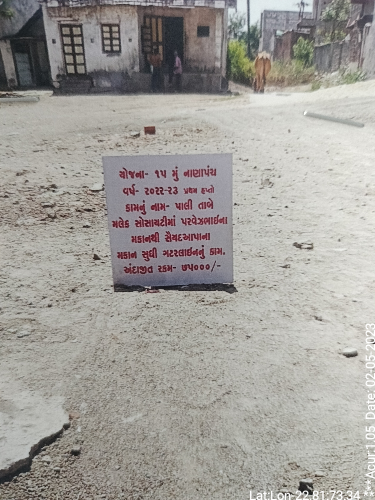 યોજના- ૧૫ મું નાણાપંચ
વર્ષ- ૨૦૨૨-૨૩ પ્રથમ હપ્તો
કામનું નામ- પાલી તાબે
મલેક સોસાયટીમાં પરવેઝભાઈના
મકાનથી સૈયદઆપાના
મકાન સુધી ગટરલાઈનનું કામ.
અંદાજીત રકમ- ૭૫૦૦૦/-
Lat:Lon 22.81:73.34 **
**Acur:1.05 Date: 02-05-2023